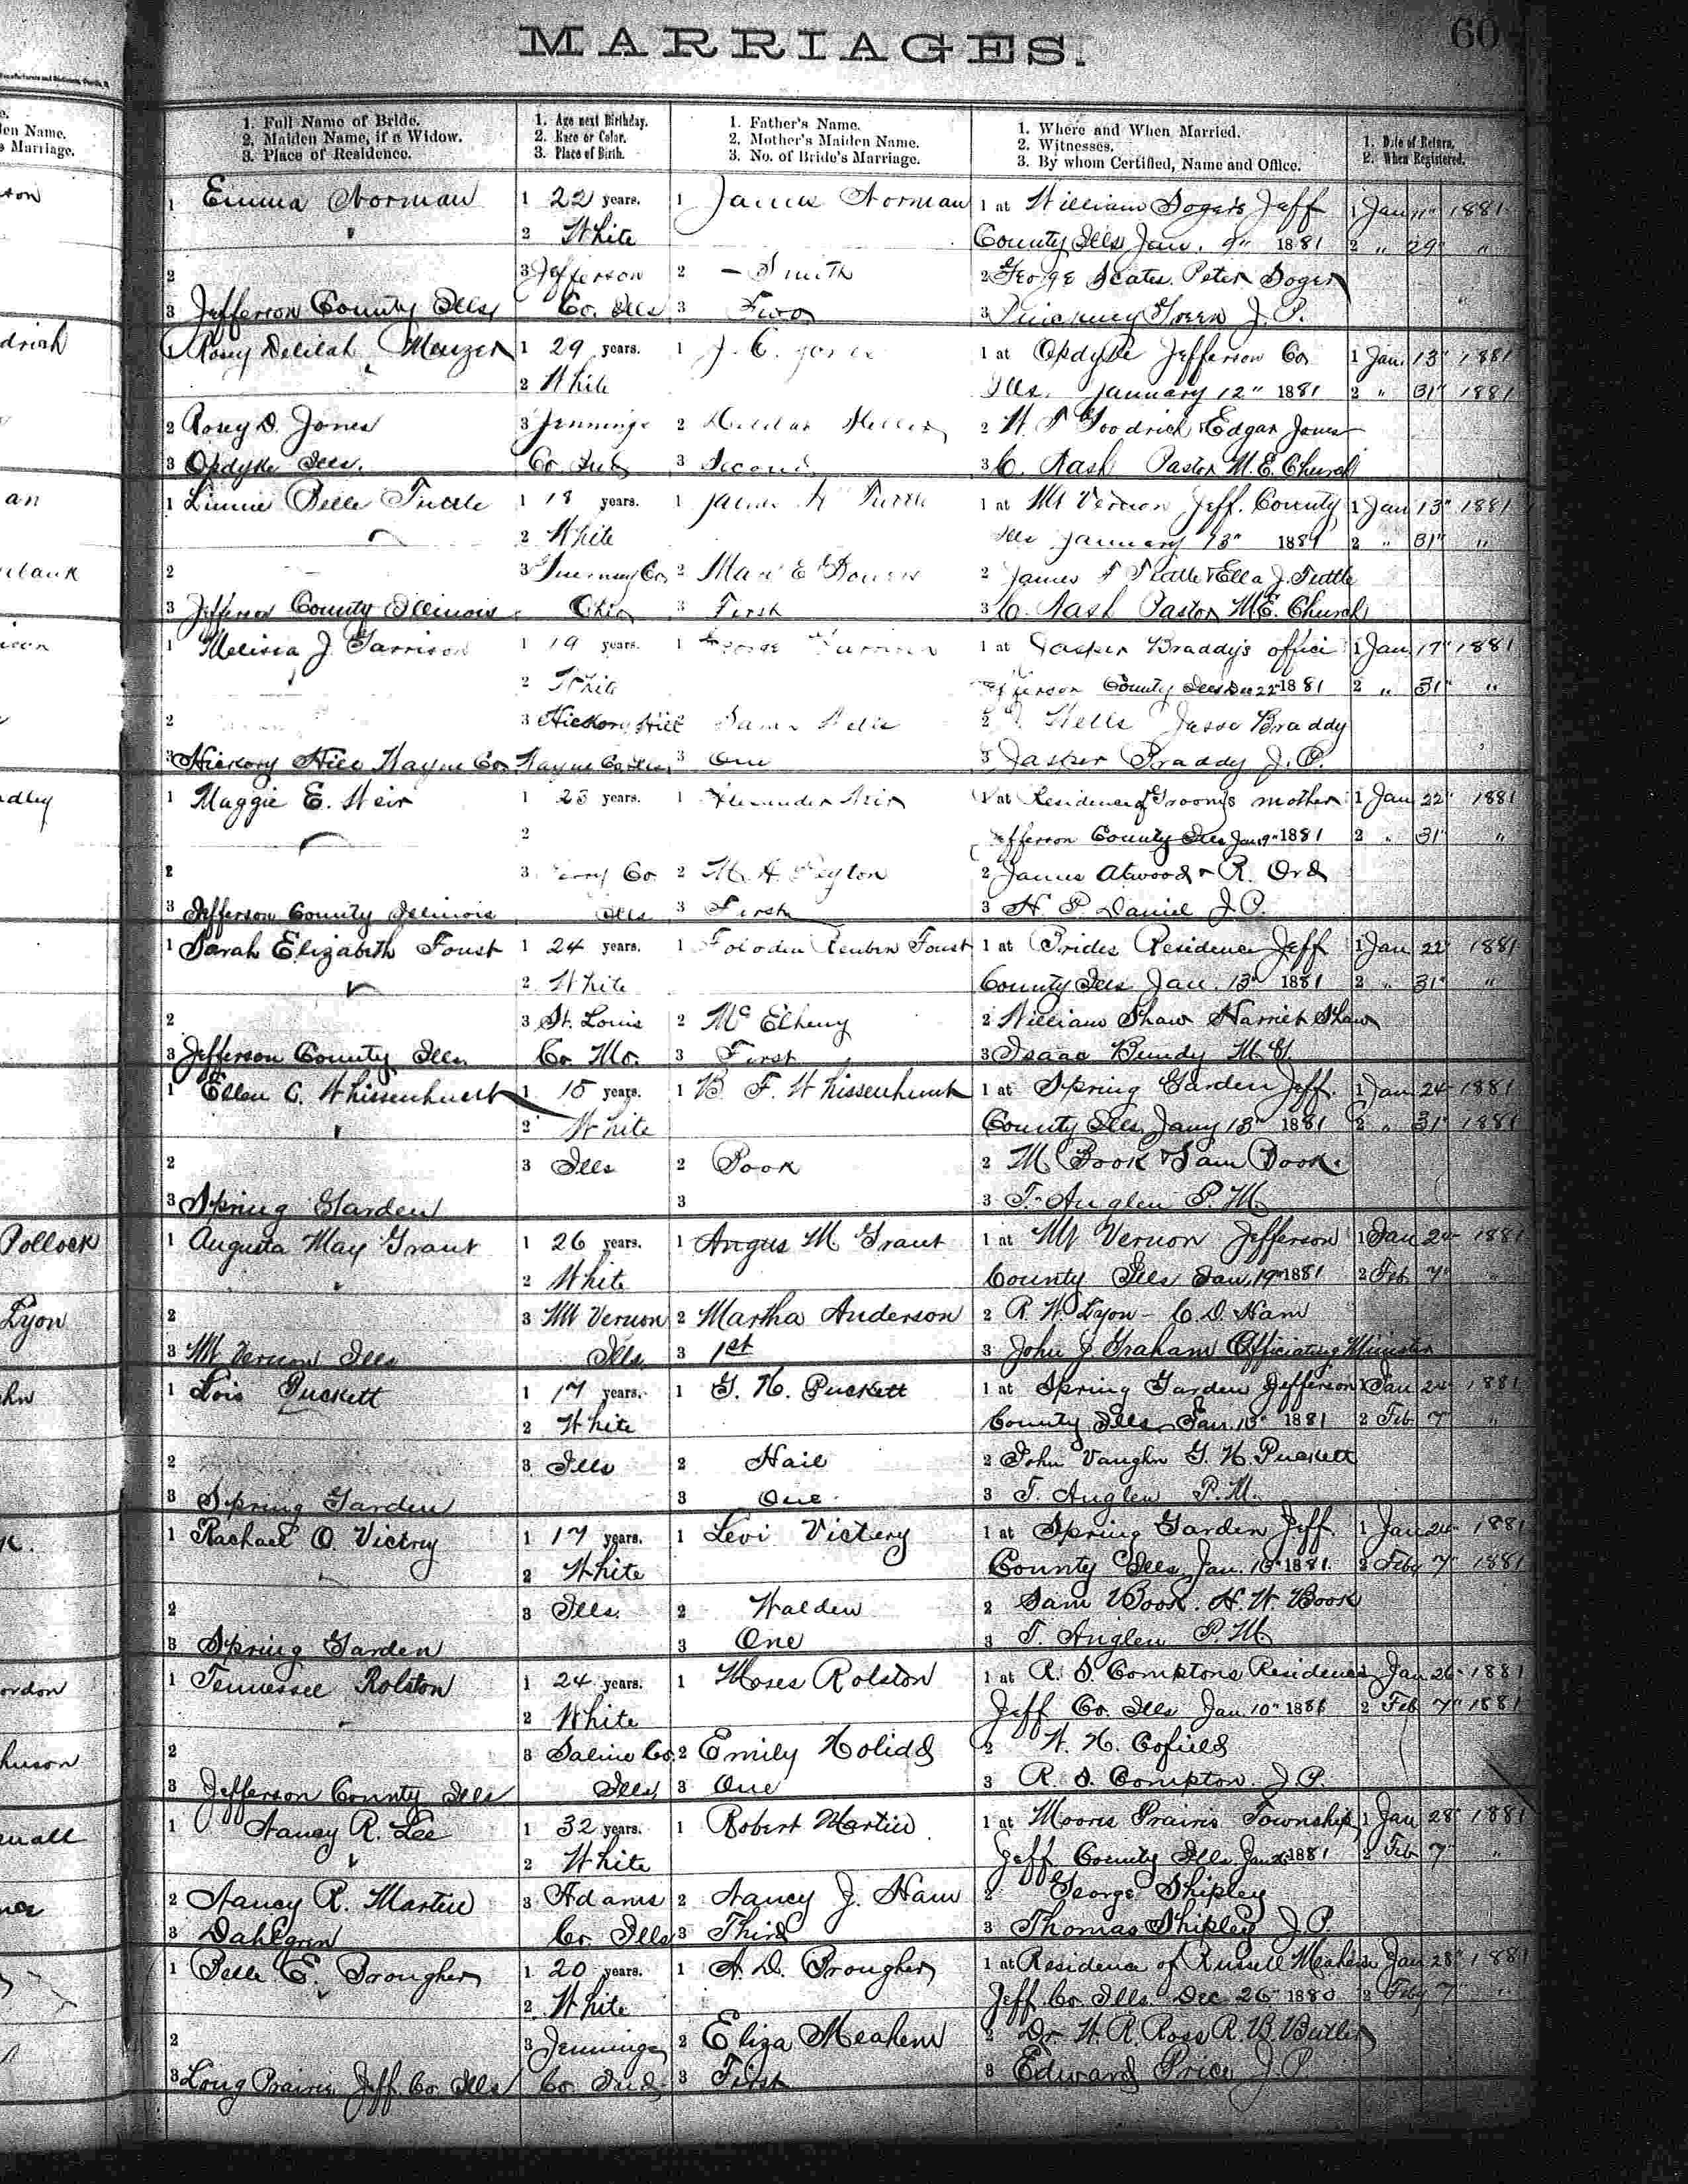 MARRIAGES.
60
1. Full Name of Bride.
2. Maiden Name, if a Widow.
3. Place of Residence.
1. Age next Birthday.
2. Race or Color.
3. Place of Birth.
1. Father's Name.
2. Mother's Maiden Name.
3. No. of Bride's Marriage.
1. Where and When Married.
2. Witnesses.
3. By whom Certified, Name and Office.
1. Date of Return.
2. When Registered.
1 Emma Norman 1 22 years. 1 James Norman 1 at William Soger's Jeff 1 Jan 11" 1881
2 White County Ills Jan. 9" 1881 2 " 29" "
2 3 Jefferson 2 – Smith 2 George Scates Peter Soger
3 Jefferson County Ills, Co. Ills 3 Two 3 Pinckney Green J. P.
1 Rosey Delilah Menzer 1 29 years. 1 J. C. Jones 1 at Opdyke Jefferson Co 1 Jan. 13" 1881
2 White Ills. January 12" 1881 2 " 31" 1881
2 Rosey D. Jones 3 Jennings 2 2 Goodrich & Edgar Jones
3 Opdyke Ills. Co Ind 3 Second 3 C. Nash Pastor M. E. Church
1 Belle Tuttle 1 18 years. 1 Tuttle 1 at Mt Vernon Jeff. County 1 Jan 13" 1881
2 White Ills January 13" 1881 2 " 31" "
2 3 Guernsey Co, 2 2 James T Tuttle & Ella J. Tuttle
3 Jefferson County Illinois Ohio 3 First 3 C. Nash Pastor M. E. Church
1 Melissa J. Garrison 1 19 years. 1 George Garrison 1 at Jasper Braddy's office 1 Jan 17" 1881
2 White Jefferson County Ills Dec 22" 1881 2 " 31" "
2 3 Hickory Hill 2 2 Wells Jesse Braddy
3 Hickory Hill Wayne Co. Wayne Co Ills, 3 One 3 Jasper Braddy J. P.
1 Maggie E. Weir 1 23 years. 1 Alexander Weir 1 at Residence of Groom's mother 1 Jan 22" 1881
2 Jefferson County Ills Jan 9" 1881 2 " 31" "
2 3 Perry Co 2 M. A. Peyton 2 James Atwood & R. Ord
3 Jefferson County Illinois Ills 3 First 3 H. P. Daniel J. P.
1 Sarah Elizabeth Foust 1 24 years. 1 Reuben Foust 1 at Brides Residence Jeff 1 Jan 22" 1881
2 White County Ills Jan. 13" 1881 2 " 31" "
2 3 St. Louis 2 McElheny 2 William Shaw Harriet Shaw
3 Jefferson County Ills. Co. Mo. 3 First 3 Isaac Bundy M. G.
1 Ellen C. Whissenhunt 1 18 years. 1 B. F. Whissenhunt 1 at Spring Garden Jeff. 1 Jan 24 1881
2 White County Ills, Jany 13" 1881 2 " 31" 1881
2 3 Ills 2 Book 2 M. Book & Sam Book.
3 Spring Garden 3 3 T. Anglen P. M.
1 Augusta May Grant 1 26 years. 1 Angus M Grant 1 at Mt Vernon Jefferson 1 Jan 24 1881
2 White County Ills Jan, 19" 1881 2 Feb 7" "
2 3 Mt Vernon 2 Martha Anderson 2 R. W. Lyon – C. D. Ham
3 Mt Vernon Ills Ills. 3 1st 3 John J Graham Officiating Minister
1 Lois Puckett 1 17 years. 1 G. H. Puckett 1 at Spring Garden Jefferson 1 Jan 24 1881
2 White County Ills Jan. 1881 2 Feb 7" "
2 3 Ills 2 Hail 2 John Vaughn G. H. Puckett
3 Spring Garden 3 One. 3 T. Anglen P. M.
1 Rachael O. Victry 1 17 years. 1 Levi Victery 1 at Spring Garden Jeff. 1 Jan 24 1881
2 White County Ills, Jan. 1881. 2 Feby 7" 1881
2 3 Ills. 2 Walden 2 Sam Book. H. W. Book
3 Spring Garden 3 One 3 T. Anglen P. M.
1 Tennessee Rolston 1 24 years. 1 Moses Rolston 1 at R. S Comptons Residence 1 Jan 26 1881
2 White Jeff Co. Ills Jan 10" 1881 2 Feb 7" 1881
2 3 Saline Co. 2 Emily Holidd 2 W. H. Cofield
3 Jefferson County Ills Ills, 3 One 3 R. S. Compton J. P.
1 Nancy R. Lee 1 32 years. 1 Robert Martin 1 at Moores Prairie Township, 1 Jan 28" 1881
2 White Jeff County Ills Jan 1881 2 Feb 7" "
2 Nancy R. Martin 3 Adams 2 Nancy J. Ham 2 George Shipley
3 Dahlgren Co. Ills 3 Third 3 Thomas Shipley J. P.
1 Belle E. Brougher 1 20 years. 1 A. D. Brougher 1 at Residence of Russell Meahem 1 Jan 28" 1881
2 White Jeff Co Ills. Dec 26" 1880 2 Feby 7" "
2 3 Jennings 2 Eliza Meahem 2 Dr W. R. Ross R. B. Butler
3 Long Prairie Jeff. Co Ills Co. Ind 3 First 3 Edward Price J. P.